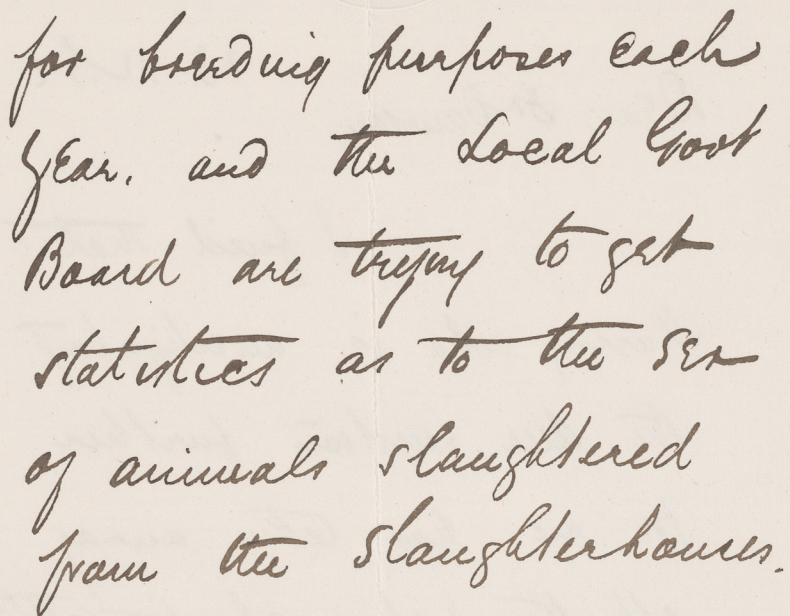 for breeding purposes each
year. and the Local Govt
Board are trying to get
statistics as to the sex
of animals slaughtered
from the Slaughterhouses.